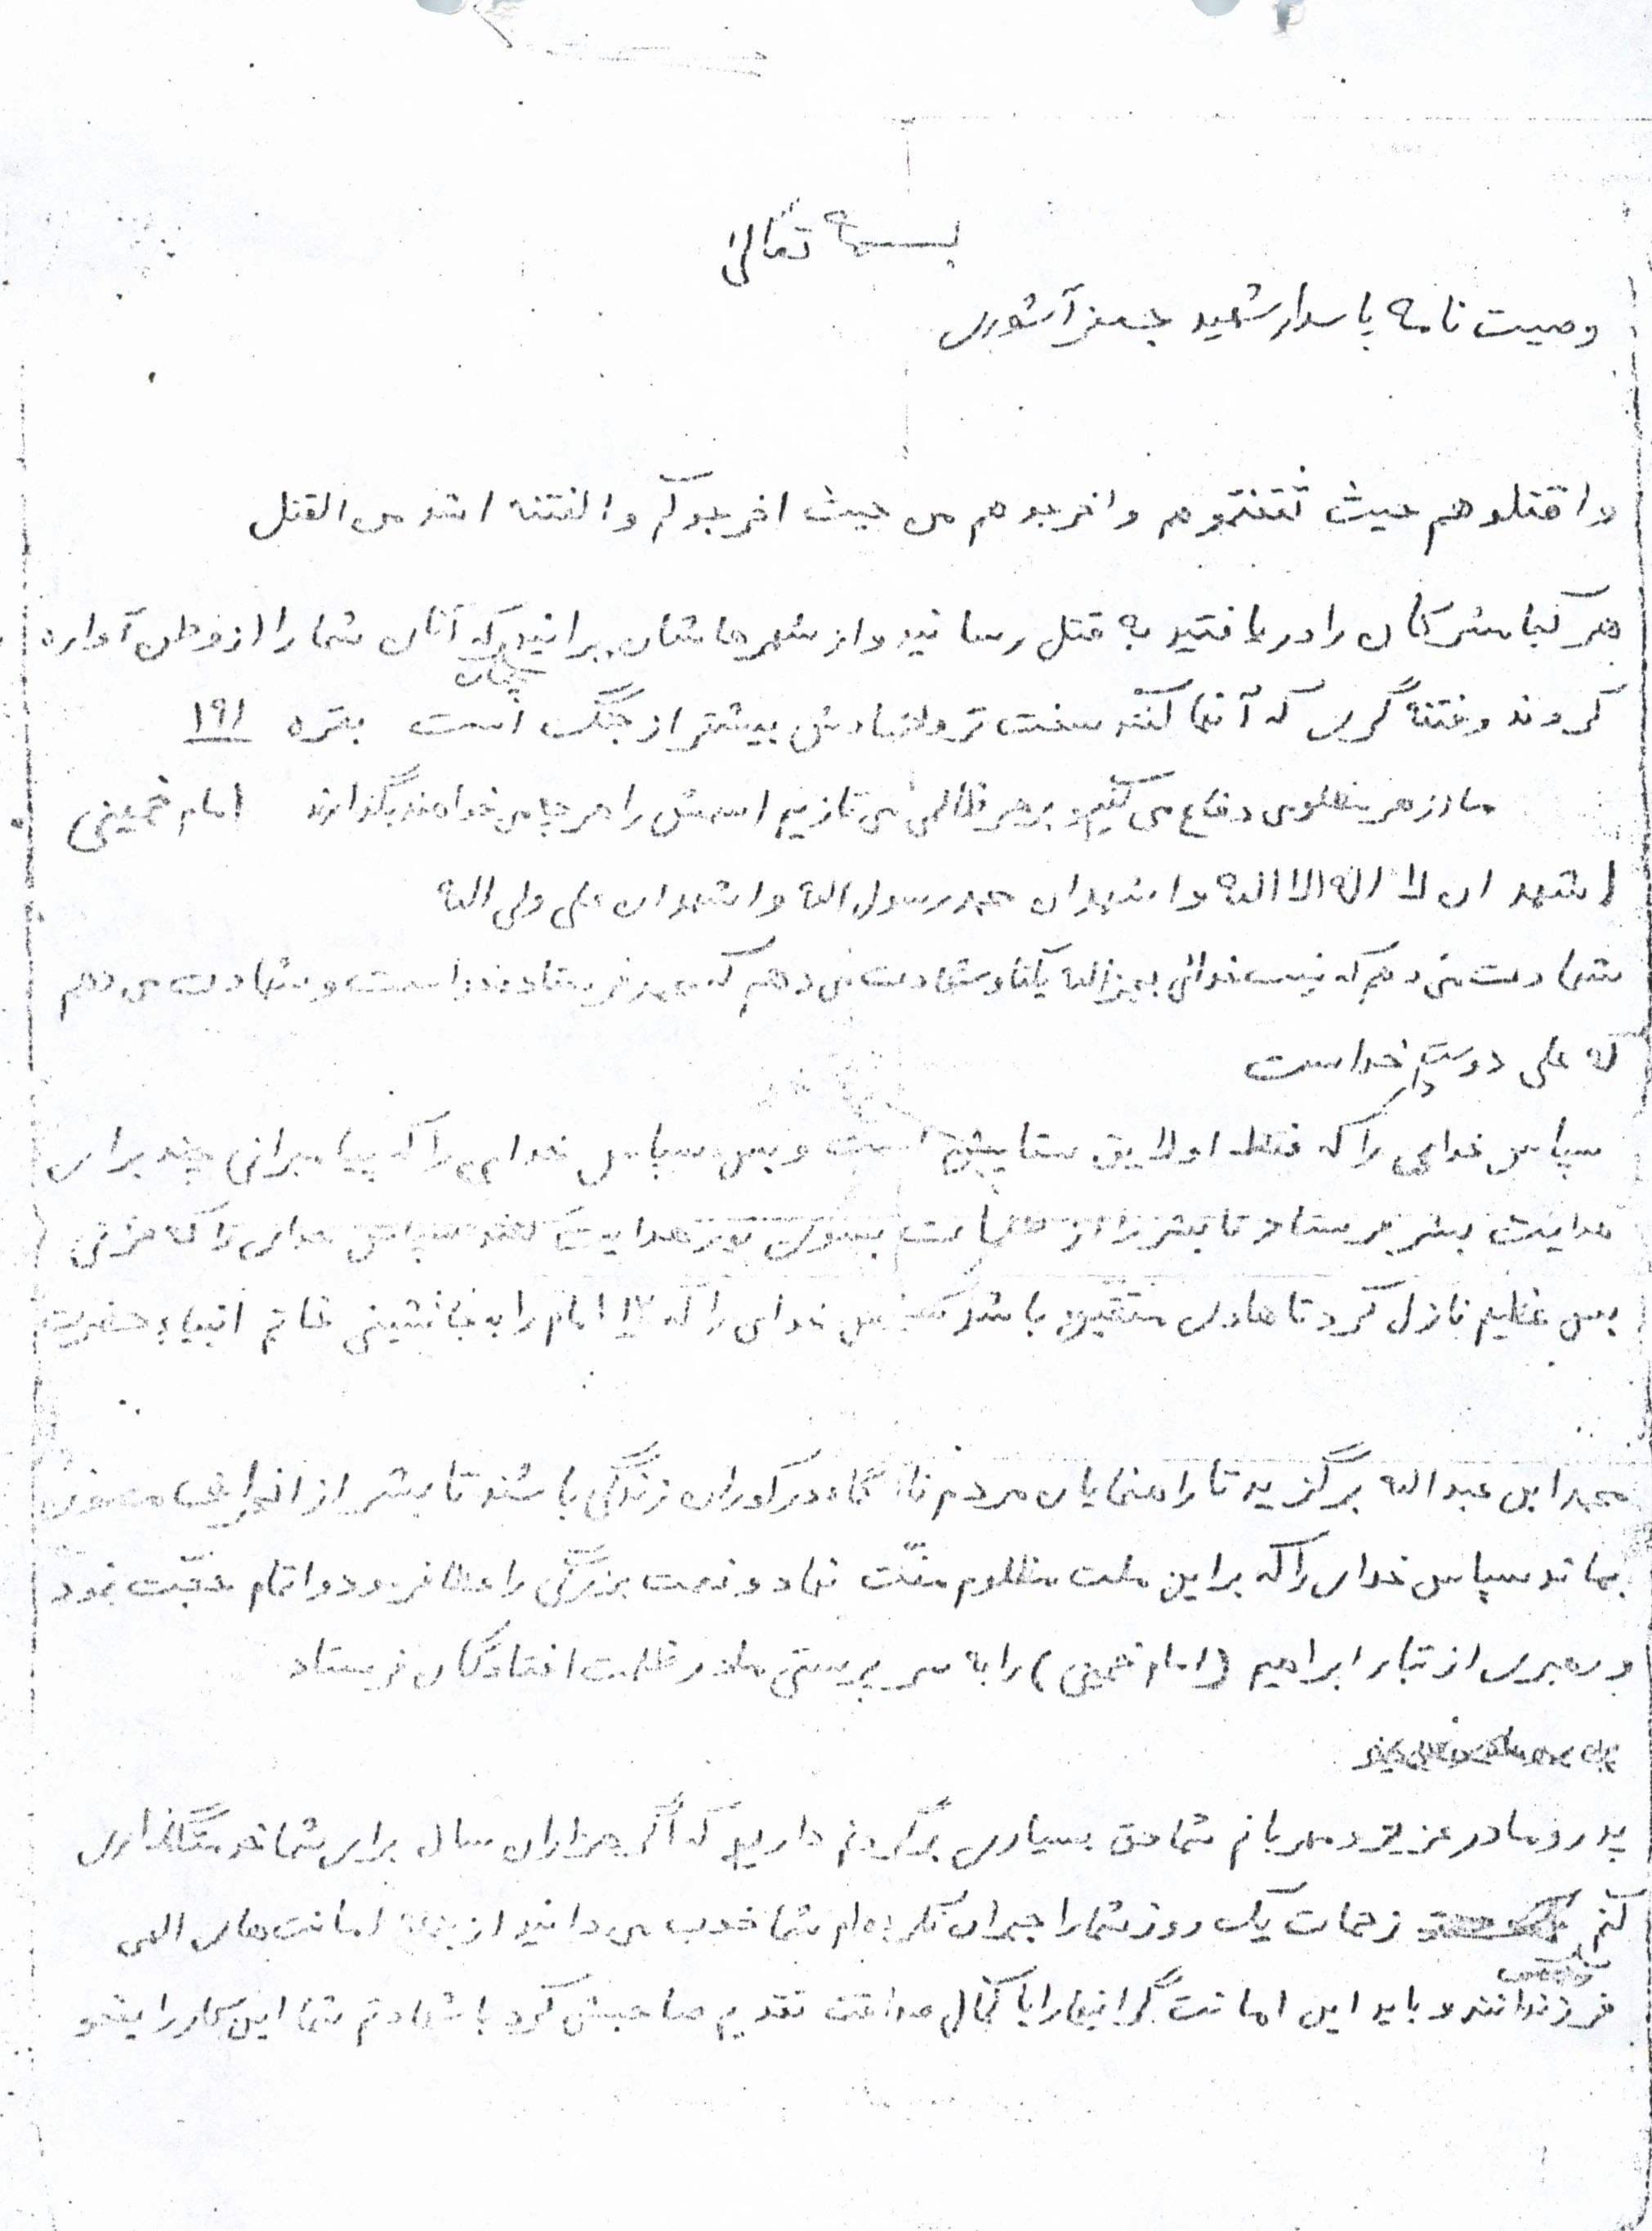 بسمه تعالی
وصیت نامه پاسدار شهید جعفر آشوری
واقتلوهم حیث ثقفتموهم واخرجوهم من حیث اخرجوکم والفتنه اشد من القتل
هر کجا مشرکان را دریافتید به قتل رسانید و از شهرهاشان برانید چنانکه آنان شما را از وطن آواره
کردند و فتنه گری که آنها کنند سخت تر و فسادش بیشتر از جنگ است بقره ۱۹۱
ما از هر مظلومی دفاع می کنیم و بر هر ظالمی می تازیم اسمش را هر چه می خواهند بگذارند امام خمینی
اشهد ان لا اله الا الله و اشهد ان محمد رسول الله و اشهد ان علی ولی الله
شهادت می دهم که نیست خدائی بجز الله یکتا و شهادت می دهم که محمد فرستاده خداست و شهادت می دهم
که علی دوستدار خداست
سپاس خدایی را که فقط او لایق ستایش است و بس سپاس خدایی را که پیامبرانی چند برای
هدایت بشر فرستاد تا بشر را از ظلمات بسوی نور هدایت کنند سپاس خدای را که قرآنی
بس عظیم نازل کرد تا هادی متقین باشد سپاس خدای را که ۱۲ امام را به جانشینی خاتم انبیاء حضرت
محمد ابن عبدالله برگزید تا راهنمایان مردم ناآگاه در کوران زندگی باشند تا بشر از انحرافات مصون
بماند سپاس خدای را که بر این ملت مظلوم منّت نهاد و نعمت بزرگی را عطا فرمود و اتمام حجّت نمود
و رهبری از تبار ابراهیم (امام خمینی) را به سرپرستی ما در ظلمت افتادگان فرستاد
پدر و مادر عزیز و مهربانم شما حق بسیاری بر گردنم دارید که اگر هزاران سال برای شما خدمتگذاری
کنم زحمات یک روز شما را جبران نکرده ام شما خوب می دانید از جمله امانت های الهی
فرزندانند و باید این امانت گرانبها را با کمال صداقت تقدیم صاحبش کرد با شهادتم شما این کار را بنحو